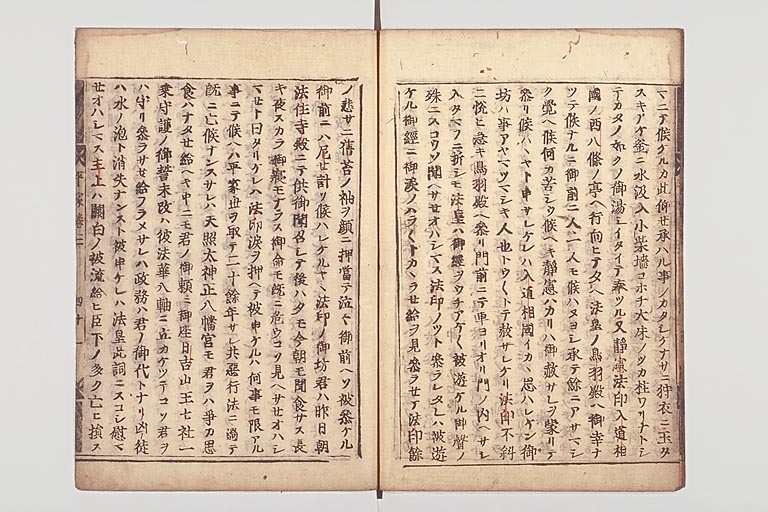 マニテ候ケルカ此仰セ承ハル事ノカタシケナサニ狩衣ニ玉タ
スキアケ釜ニ水汲入小柴墻コホチ大床ノツカ柱ワリナトシ
テカタノ如クノ御湯シイタイテ奉ツル又静憲法印入道相
國ノ西八條ノ亭ヘ行向ヒテタレハ法皇ノ鳥羽殿ヘ御幸ナ
ツテ候ナルニ御前ニ人一人モ候ハヌヨシ承テ餘ニアサマシ
ク覚ヘ候何カ苦シウ候ヘキ静憲ハカリハ御赦サレヲ蒙リテ
参リ候ハハヤト申サレケレハ入道相國イカヽ思ハレケン御
坊ハ事アヤマツマシキ人也トウ〱トテ赦サレケリ法印不斜
ニ悦ヒ急キ鳥羽殿ヘ参リ門前ニテ車ヨリオリ門ノ内ヘサシ
入タマフニ折シモ法皇ハ御經ヲウチアケ〱被遊ケル御聲ノ
殊ニスコウソ聞ヘサセオハシマス法印ノツト参ラレタレハ被遊
ケル御經ニ御涙ノハラ〱トカヽラせ給ヲ見参ラセテ法印餘
ノ悲サニ舊苔ノ袖ヲ顔ニ押當テ泣〱御前ヘソ被参ケル
御前ニハ尼せ計リ候ハレケルヤヽ法印ノ御坊君ハ昨日朝
法住寺殿ニテ供御聞召シテ後ハタモ今朝モ聞食サス長
キ夜スカラ御寝モナラス御命モ既ニ危ウコソ見ヘサせオハシ
マせト曰タリケレハ法印涙ヲ押ヘテ被申ケルハ何事モ限アル
事ニテ候ヘハ平家世ヲ取テ二十餘年サレ共悪行法ニ過テ
既ニ亡候ナンスサレハ天照太神正八幡宮モ君ヲハ爭カ思
食ハナタせ給ヘキ中ニモ君ノ御頼ミ御座日吉山王七社一
乗守護ノ御誓未改ハ彼法華八軸ニ立カケツテコソ君ヲ
ハ守リ参ラサせ給フラメサレハ政務ハ君ノ御代トナリ凶徒
ハ水ノ泡ト消失ナンスト被申ケレハ法皇此詞ニスコシ慰マ
せオハシマス主上ハ關白ノ被流給ヒ臣下ノ多ク亡ヒ損ス
平家巻三
四十一